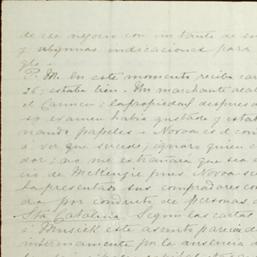 de ese negocio con un tanto de en
y algunas indicaciones para
glo.
P. M. en este momento recibo car
26, estaba bien. Un marchante
el Carmen: la propiedad despues d
so examen habia gustado y estab
nando papeles. Novoa es el con
á ver que sucede; ignoro quien
dor: no me estrañará que sea
cio de McKenzie pues Novoa se
ha presentado sus compradores con
dra por conducto de personas d
Sta Catalina. Segun las cartas
Musick este asunto parecia de
internamente por la ausencia d